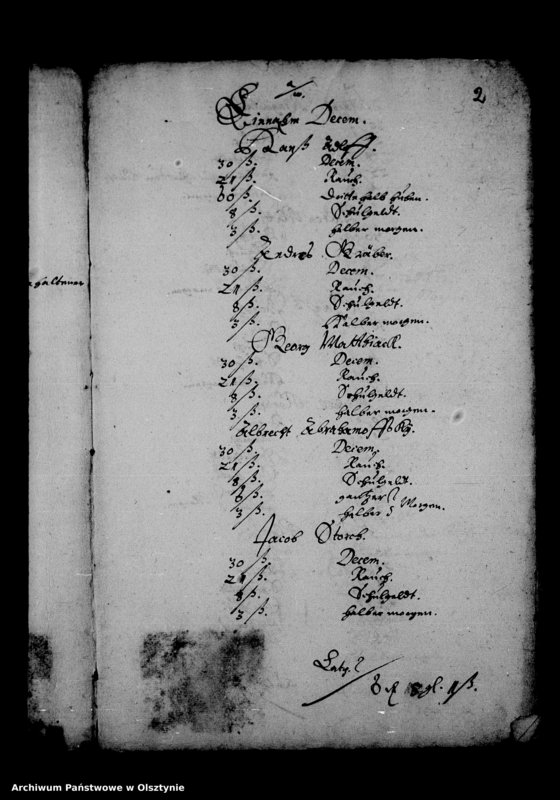 2
Einnahm Decem.
Hanß Adloff.
30 ß. Decem.
21 ß. Rauch.
60 ß. dritte halb huben.
8 ß. Schulgeldt.
3 ß. halber morgen.
Andres Gräber.
30 ß. Decem.
21 ß. Rauch.
8 ß. Schulgeldt.
3 ß. Halber morgen.
Georg Matthiack.
30 ß. Decem.
21 ß. Rauch.
8 ß. Schulgeldt.
3 ß. halber morgen.
Albrecht Abrahamoffsky.
30 ß. Decem.
21 ß. Rauch.
8 ß. Schulgeldt.
6 ß. gantzer
3 ß. halber Morgen.
Jacob Storch.
30 ß. Decem.
21 ß. Rauch.
8 ß. Schulgeldt.
3 ß. halber morgen.
Latg.
Archiwum Państwowe w Olsztynie